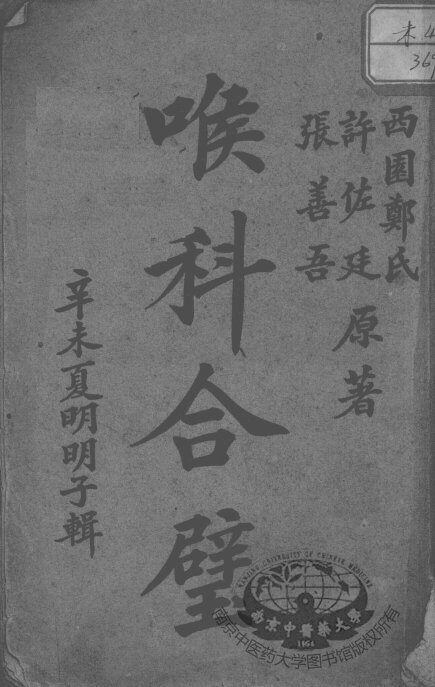 西園鄭氏
許佐廷
張善吾
原著
喉科合璧
辛未夏明明子輯
NANJING UNIVERSITY OF CHINESE MEDICINE
南京中醫藥大學
1954
南京中医药大学图书馆版权所有